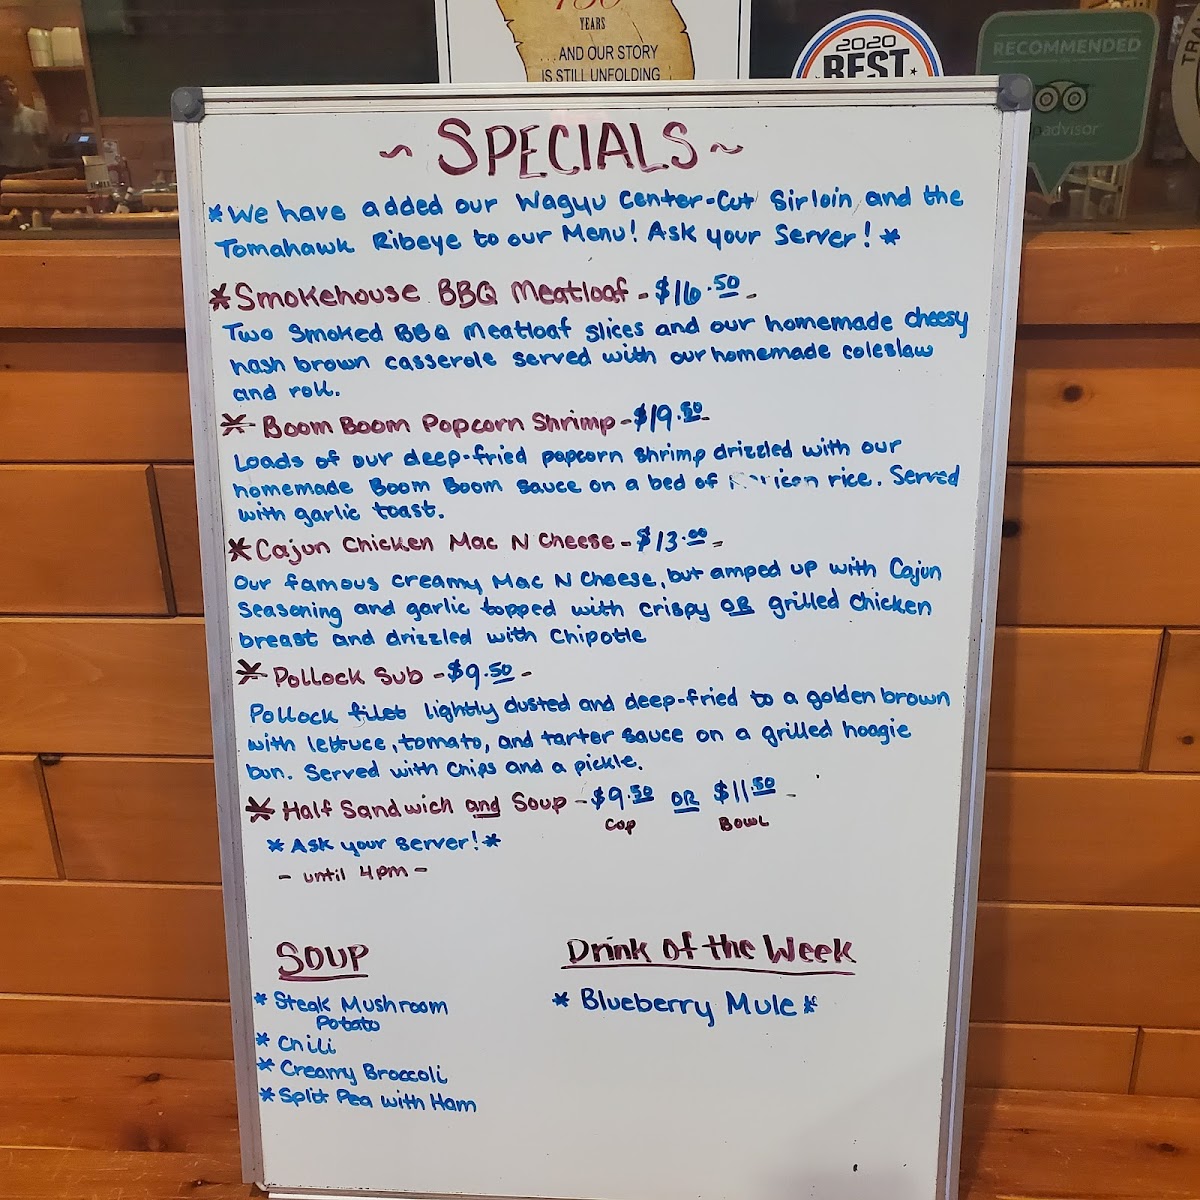 YEARS
...AND OUR STORY
IS STILL UNFOLDING
2020
BEST
RECOMMENDED
advisor
~ SPECIALS ~
*We have added our Wagyu Center-Cut Sirloin, and the
Tomahawk Ribeye to our Menu! Ask your Server! *
*Smokehouse BBQ Meatloaf - $16.50 -
Two Smoked BBQ Meatloaf slices and our homemade cheesy
hash brown casserole served with our homemade coleslaw
and roll.
* Boom Boom Popcorn Shrimp - $19.50 -
Loads of our deep-fried popcorn shrimp drizzled with our
homemade Boom Boom sauce on a bed of rice. Served
with garlic toast.
* Cajun Chicken Mac N Cheese - $13.00 -
Our famous creamy Mac N Cheese, but amped up with Cajun
Seasoning and garlic topped with crispy OR grilled chicken
breast and drizzled with Chipotle
* Pollock Sub - $9.50 -
Pollock filet lightly dusted and deep-fried to a golden brown
with lettuce, tomato, and tarter sauce on a grilled hoagie
bun. Served with chips and a pickle.
* Half Sandwich and Soup - $9.50 OR $11.50 -
Cup Bowl
* Ask your server! *
- until 4pm -
Soup
* Steak Mushroom
Potato
* Chili
* Creamy Broccoli
* Split Pea with Ham
Drink of the Week
* Blueberry Mule *